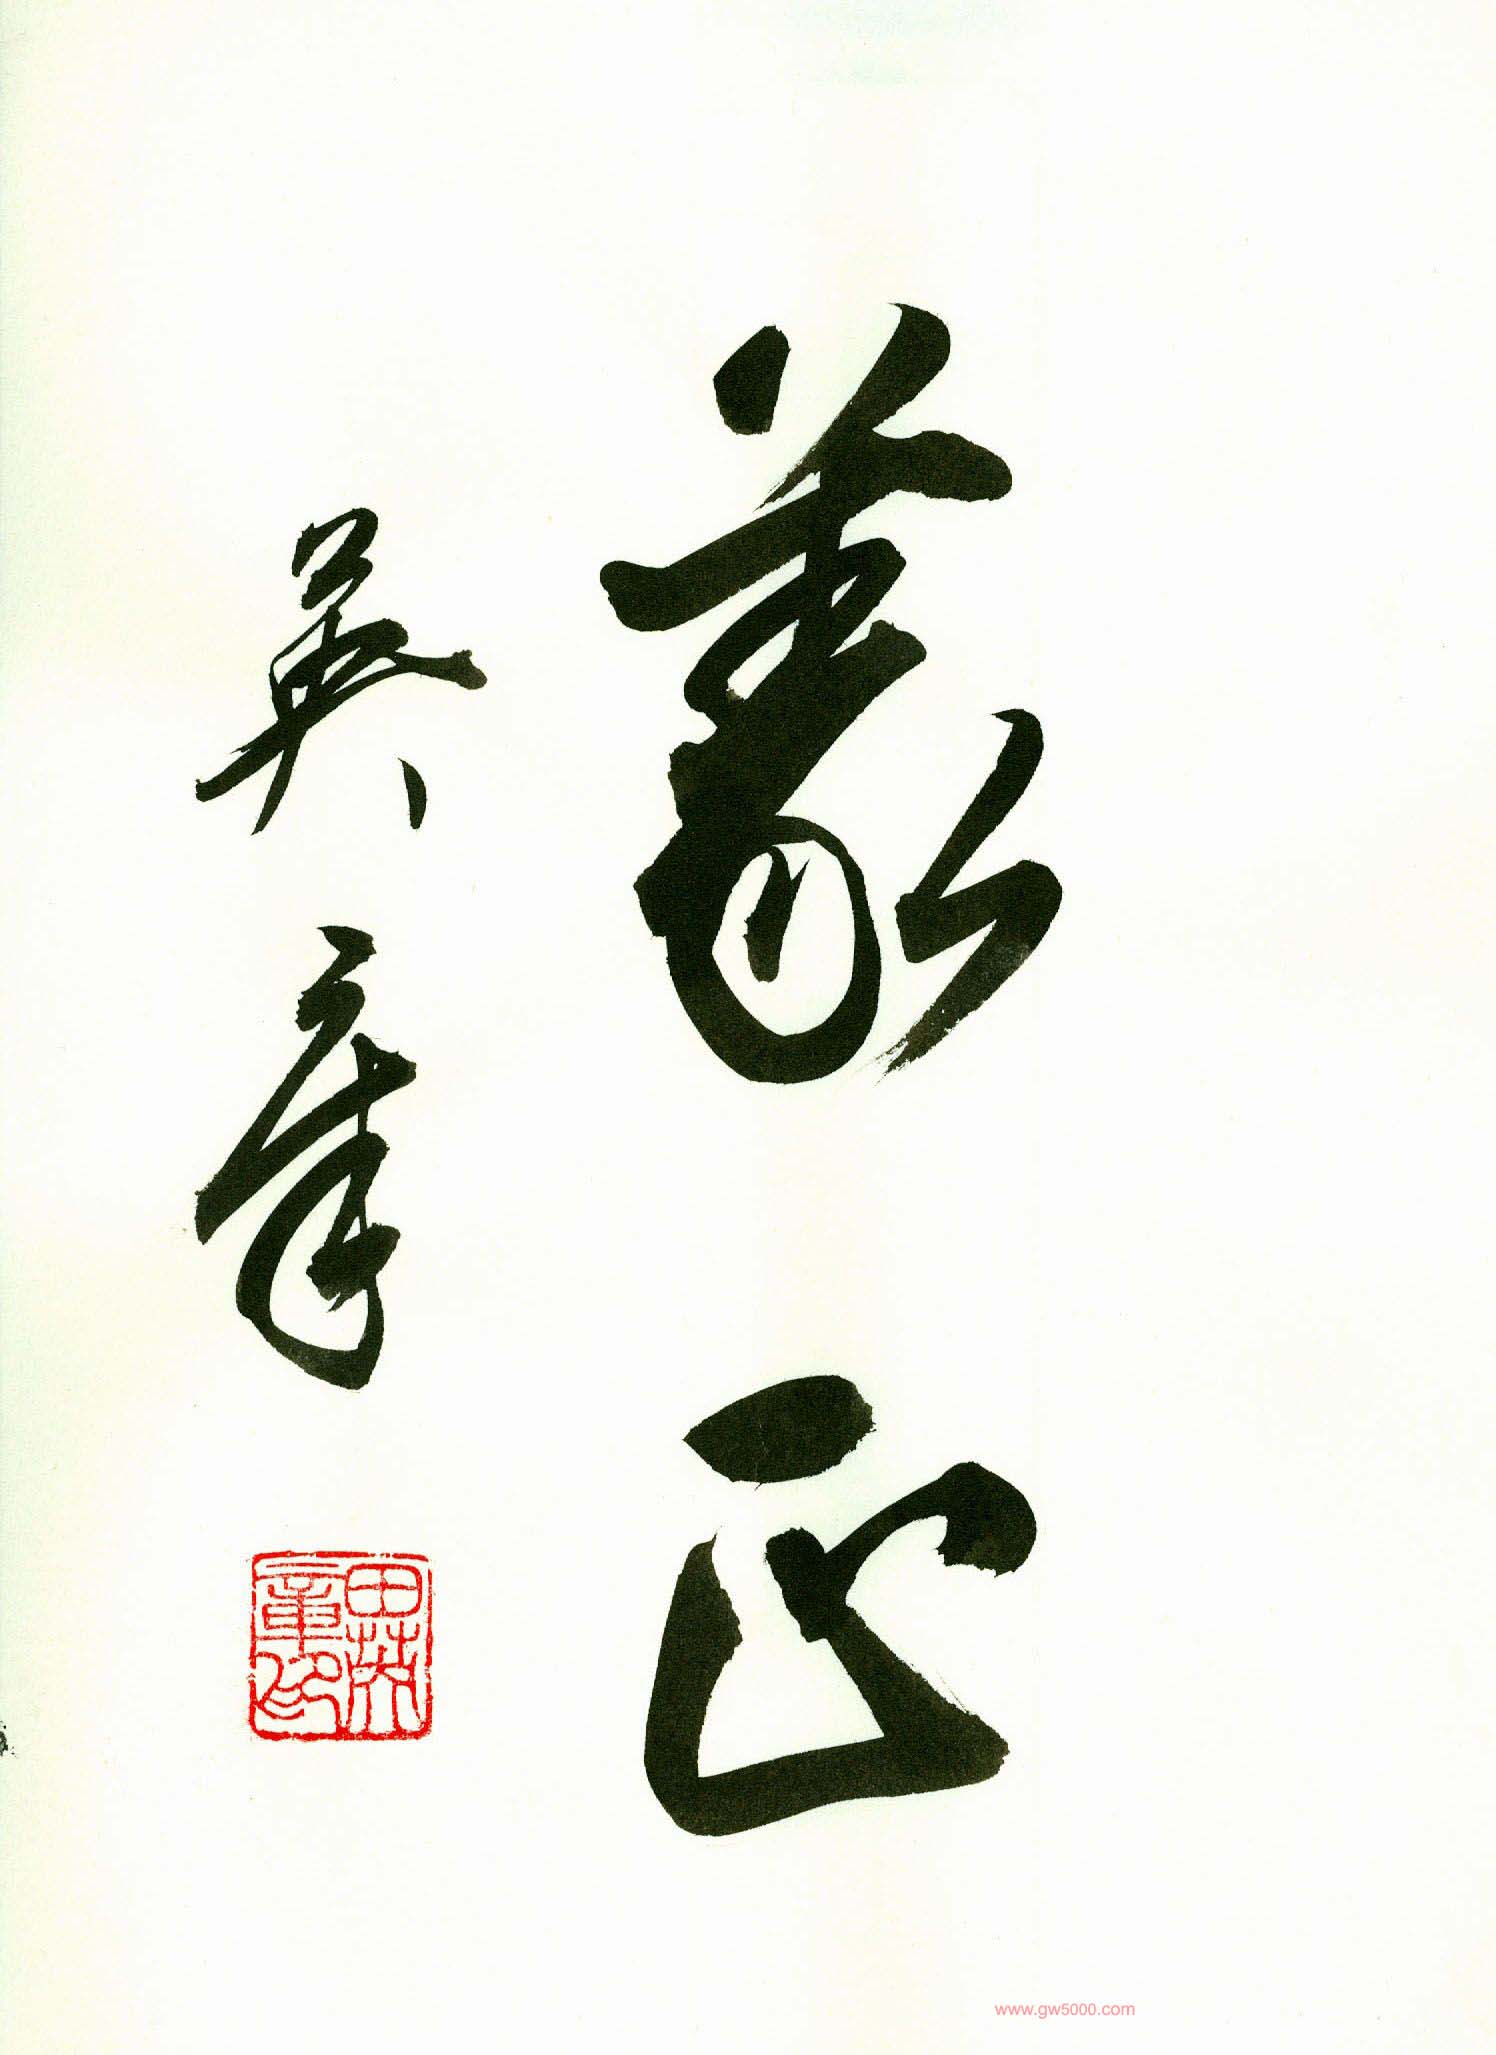 義正
英章
田英章印
www.gw5000.com